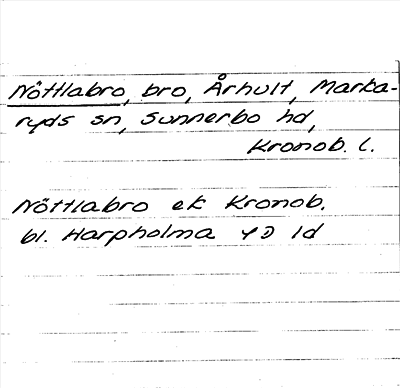 Nöttlabro, bro, Århult, Marka-
ryds sn, Sunnerbo hd,
Kronob. l.
Nöttlabro ek Kronob.
bl. Harpholma 4 D 1d